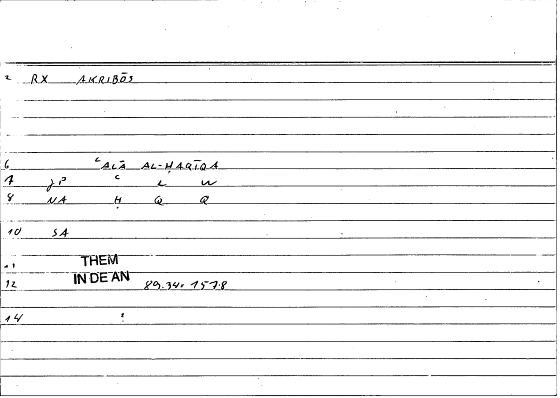 2 RX AKRIBŌS
6 ʿALĀ AL-ḤAQĪQA
7 JP ʿ L W
8 NA Ḥ Q Q
10 SA
11 THEM
IN DE AN
12 89.34. 157.8
14 2